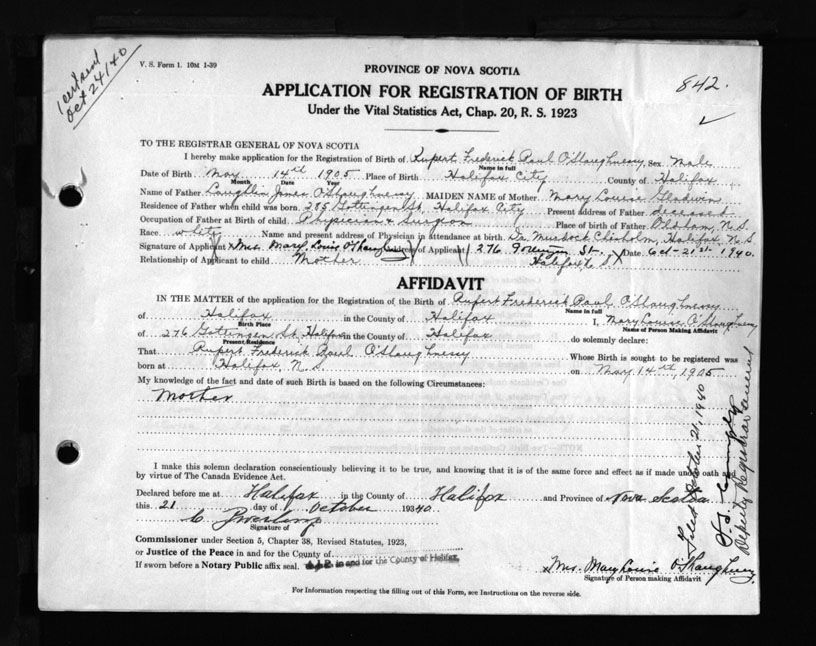 1 cert sent
Oct 24/40
V. S. Form 1. 10M 1-39
PROVINCE OF NOVA SCOTIA
842.
APPLICATION FOR REGISTRATION OF BIRTH
Under the Vital Statistics Act, Chap. 20, R. S. 1923
TO THE REGISTRAR GENERAL OF NOVA SCOTIA
I hereby make application for the Registration of Birth of Rupert Frederick Paul O'Shaughnessy, Sex Male
Name in full
Date of Birth May 14th 1905 Place of Birth Halifax City County of Halifax
Month Date Year
Name of Father Jones O'Shaughnessy MAIDEN NAME of Mother Mary Louise Gladwin
Residence of Father when child was born. 285 Gottingen St. Halifax City Present address of Father deceased
Occupation of Father at Birth of child. Physician & Surgeon Place of birth of Father Oldham, N.S.
Race white Name and present address of Physician in attendance at birth. Dr. Murdock Chisholm, Halifax, N.S.
Signature of Applicant Mrs. Mary Louise O'Shaughnessy of Applicant 276 St., Date Oct-21st 1940.
Relationship of Applicant to child Mother Halifax N.S.
AFFIDAVIT
IN THE MATTER of the application for the Registration of the Birth of Rupert Frederick Paul O'Shaughnessy
Name in full
of Halifax in the County of Halifax I, Mary Louise O'Shaughnessy
Birth Place Name of Person Making Affidavit
of 276 Gottingen St. Halifax in the County of Halifax do solemnly declare:
Present Residence
That Rupert Frederick Paul O'Shaughnessy Whose Birth is sought to be registered was
born at Halifax N.S. on May 14th, 1905
My knowledge of the fact and date of such Birth is based on the following Circumstances:
Mother
I make this solemn declaration conscientiously believing it to be true, and knowing that it is of the same force and effect as if made under oath and
by virtue of The Canada Evidence Act.
Declared before me at Halifax in the County of Halifax and Province of Nova Scotia
this 21 day of October 1940
Signature of
Commissioner under Section 5, Chapter 38, Revised Statutes, 1923,
or Justice of the Peace in and for the County of
If sworn before a Notary Public affix seal. A J.P. in and for the County of Halifax.
Mrs. Mary Louise O'Shaughnessy.
Signature of Person making Affidavit
For Information respecting the filling out of this Form, see Instructions on the reverse side.
Filed October 21, 1940
Deputy Registrar General